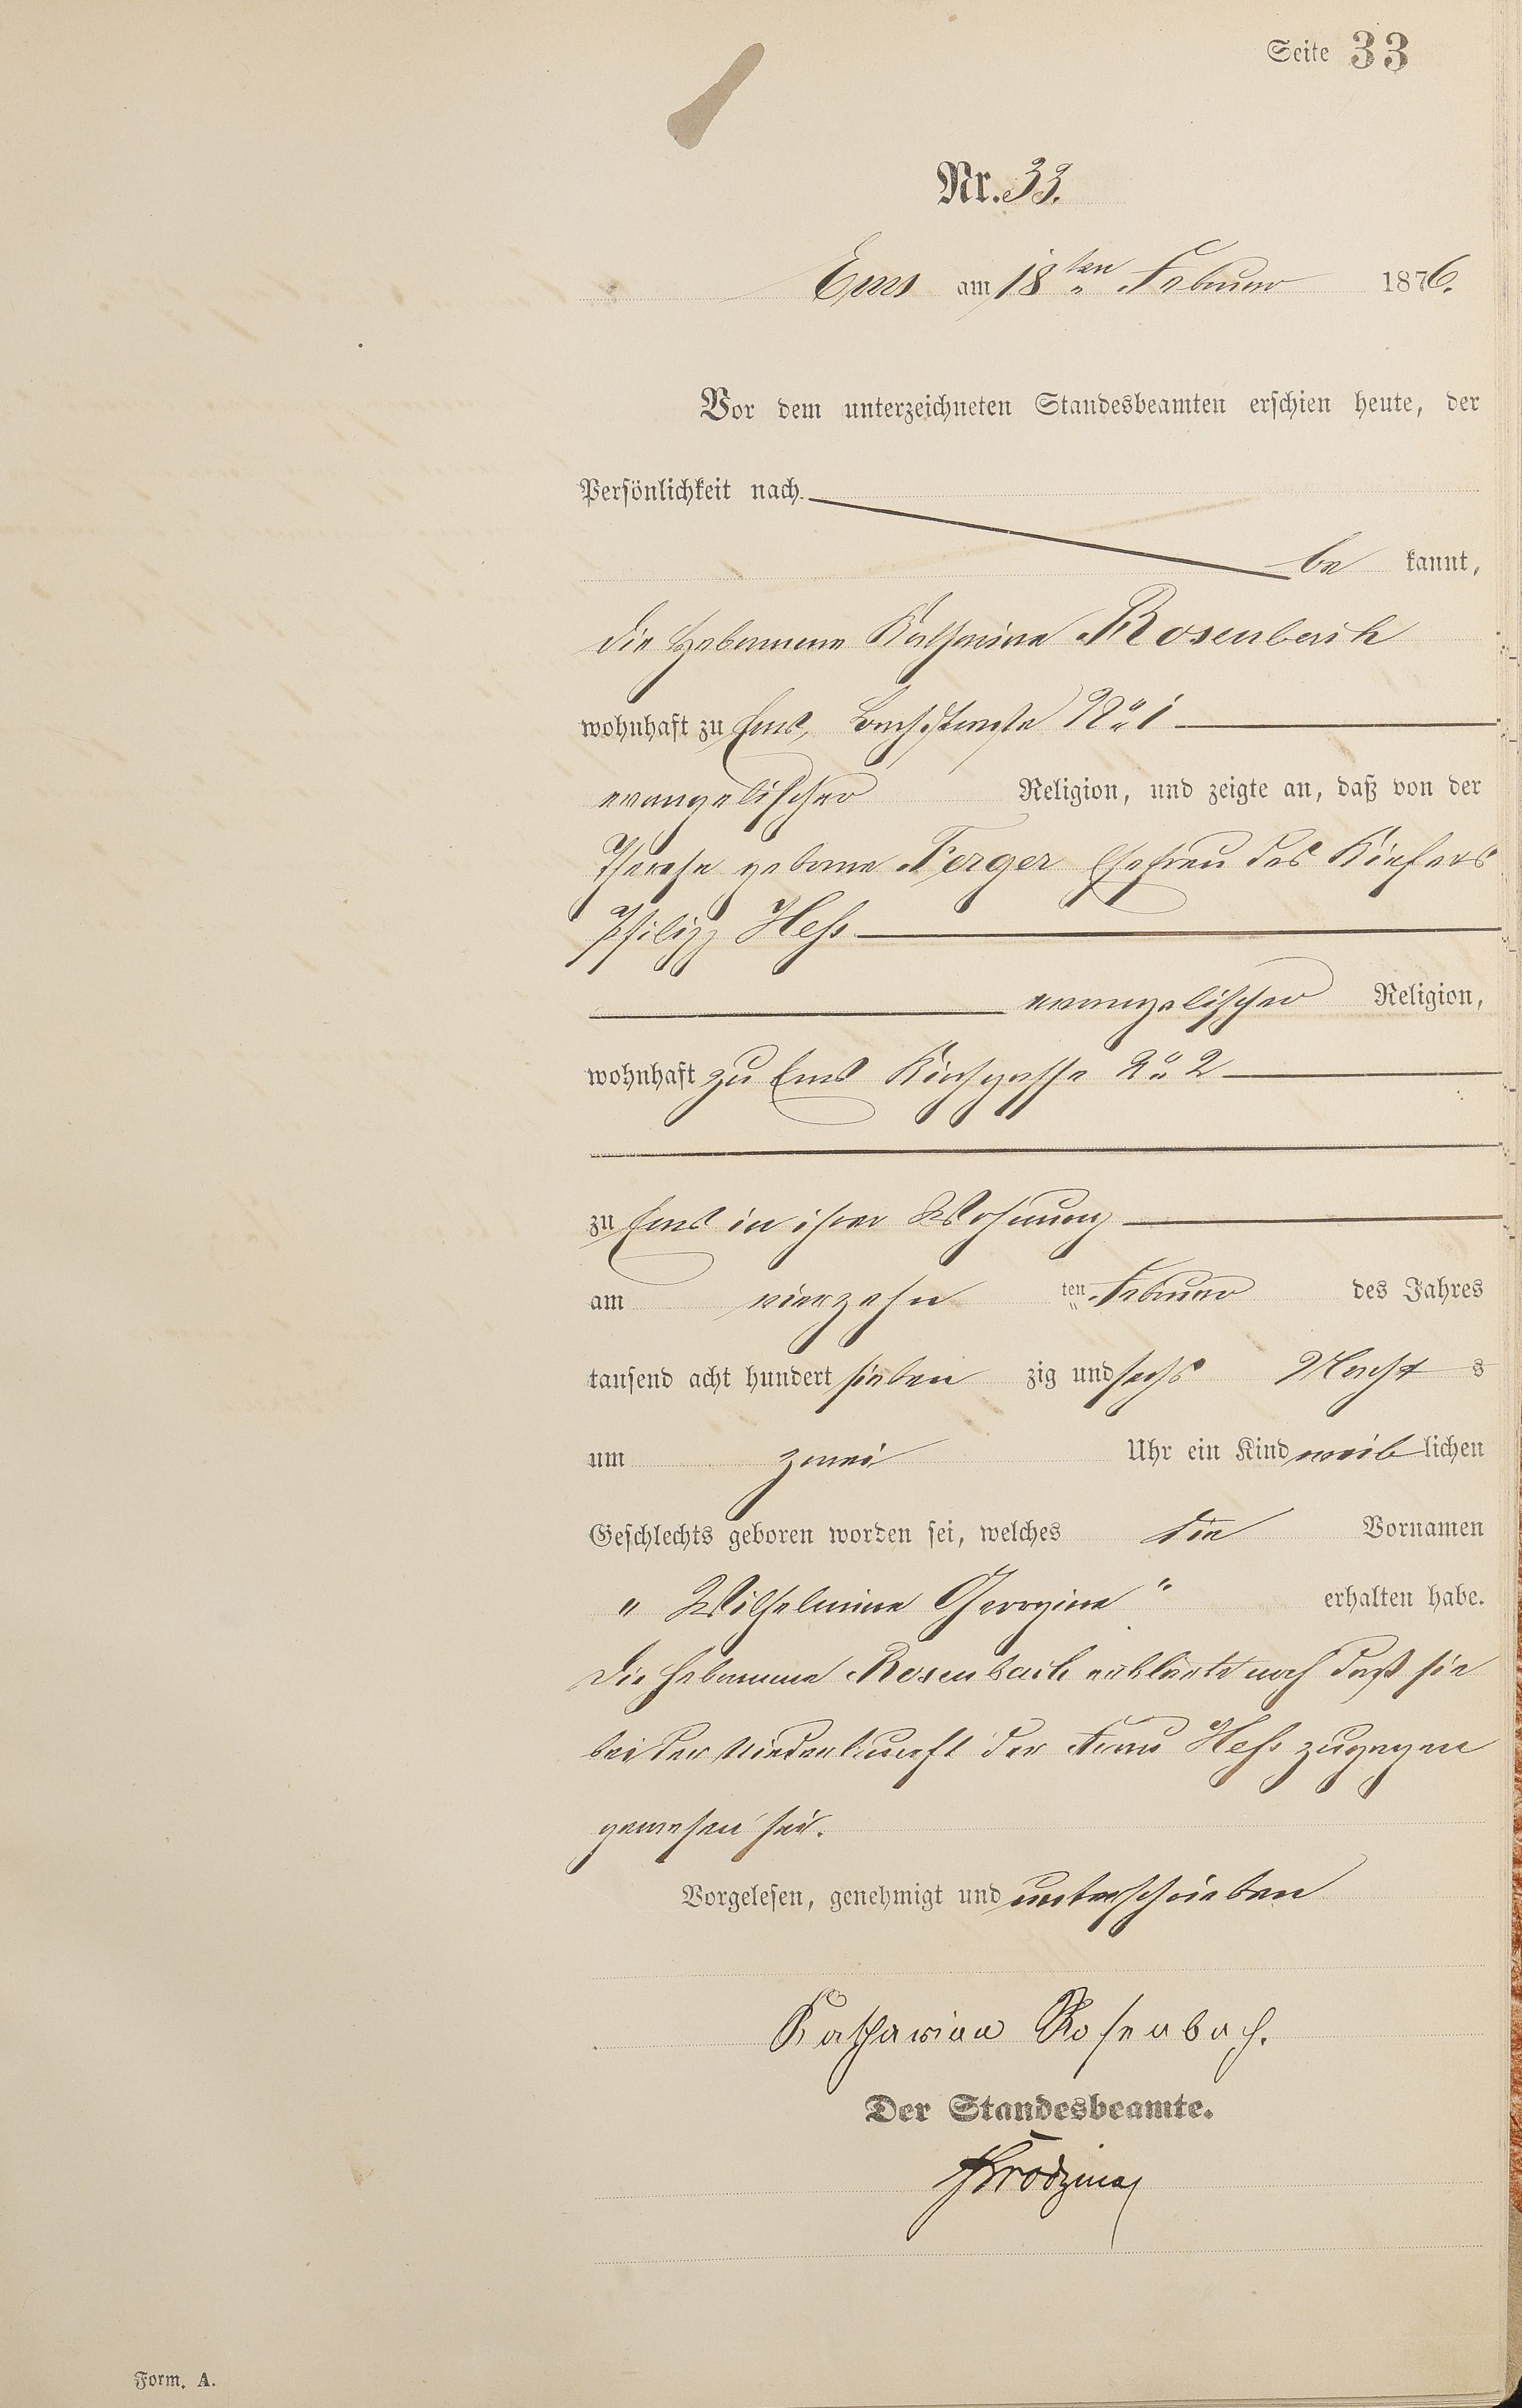 Seite 33
Nr. 33.
Ems am 18ten Februar 1876.
Vor dem unterzeichneten Standesbeamten erschien heute, der
Persönlichkeit nach
be kannt,
die Hebamme Katharina Rosenbach
wohnhaft zu Ems, Bachstraße No 1
evangelischer Religion, und zeigte an, daß von der
Therese geborne Ferger Ehefrau des Küfers
Philipp Heß
evangelischer Religion,
wohnhaft zu Ems Kirchgasse No 2
zu Ems in ihrer Wohnung
am vierzehn ten Februar des Jahres
tausend acht hundert sieben zig und sechs Nacht s
um zwei Uhr ein Kind weib lichen
Geschlechts geboren worden sei, welches die Vornamen
"Wilhelmine Georgine" erhalten habe.
Die Hebamme Rosenbach erklärte noch daß sie
bei der Niederkunft der Frau Heß zugegen
gewesen sei.
Vorgelesen, genehmigt und unterschrieben
Katharina Rosenbach.
Der Standesbeamte.
Form. A.